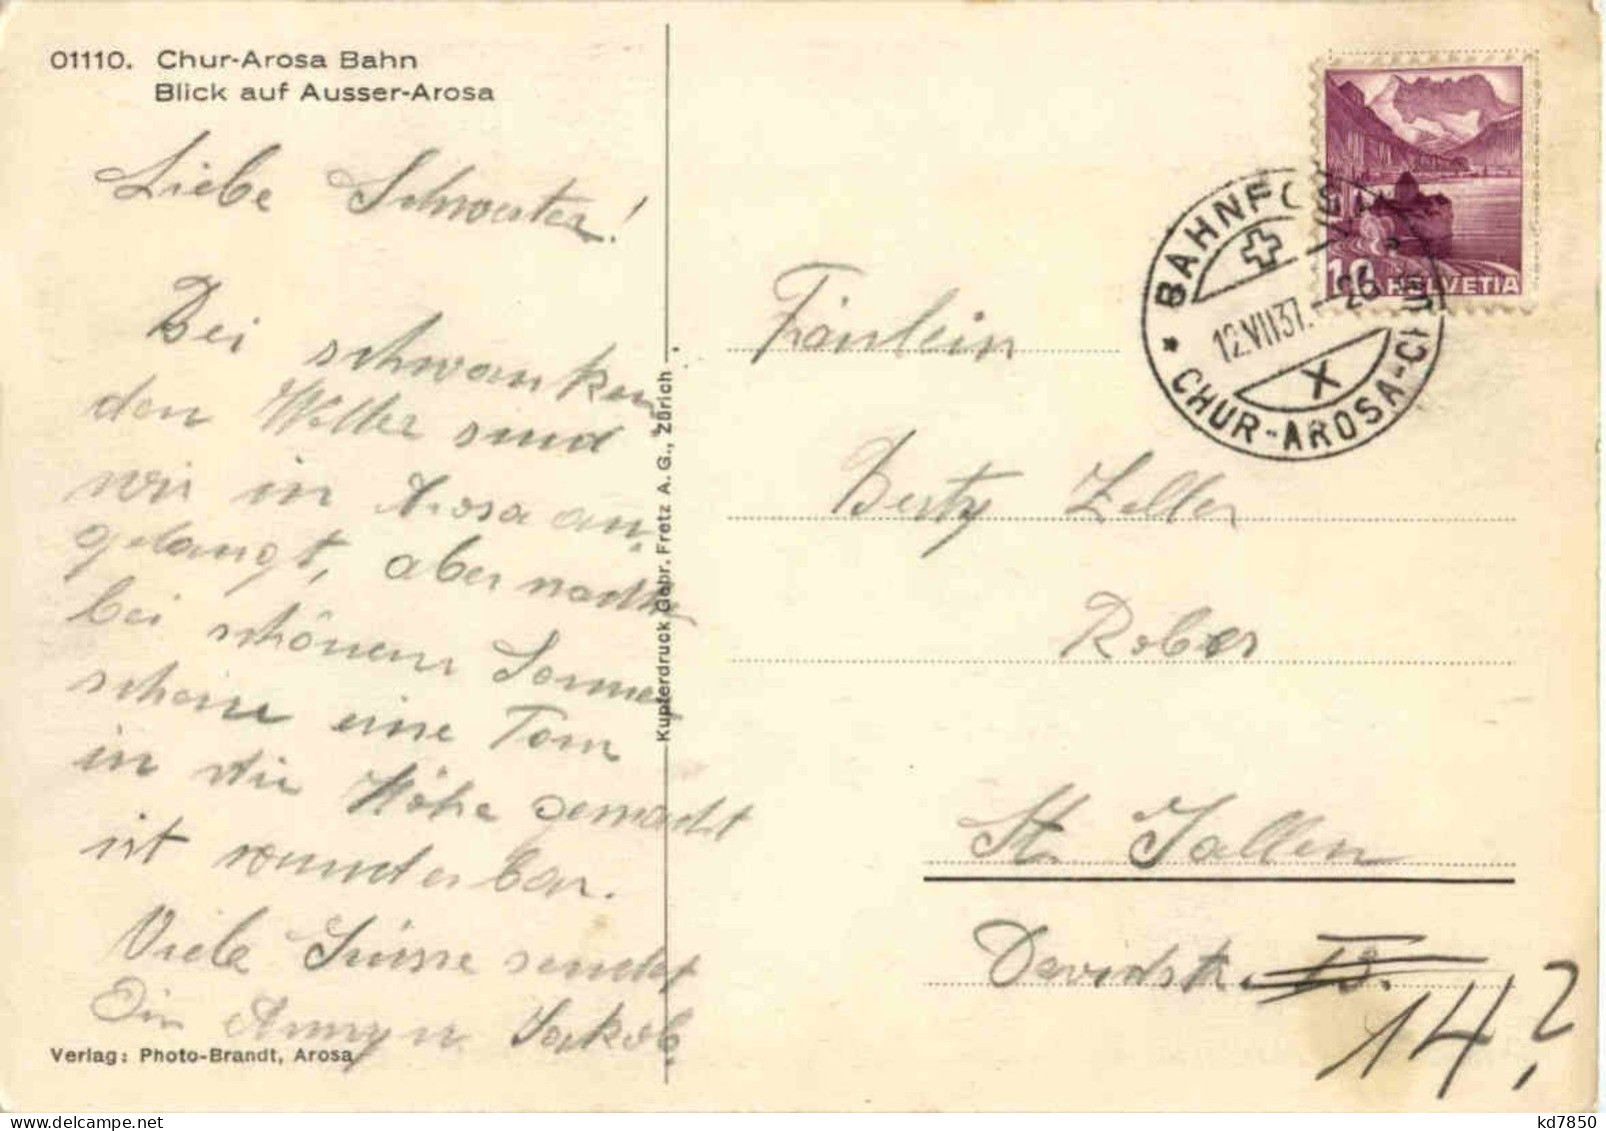 01110. Chur-Arosa Bahn
Blick auf Ausser-Arosa
Liebe Schwester!
Bei schwanken
den Wetter sind
wir in Arosa an-
gelangt, aber nachher
bei schönem Sonnen
schein eine Tour
in die Höhe gemacht
ist wunderbar.
Viele Grüsse sendet
Dir Anny u. Jakob.
Verlag: Photo-Brandt, Arosa
Kupferdruck Gebr. Fretz A. G., Zürich
BAHNPOST
12.VII.37.
X
* CHUR-AROSA-CHUR
10 HELVETIA
Fräulein
Berty Zeller
St. Gallen
Davidstr.
14?
kd7850